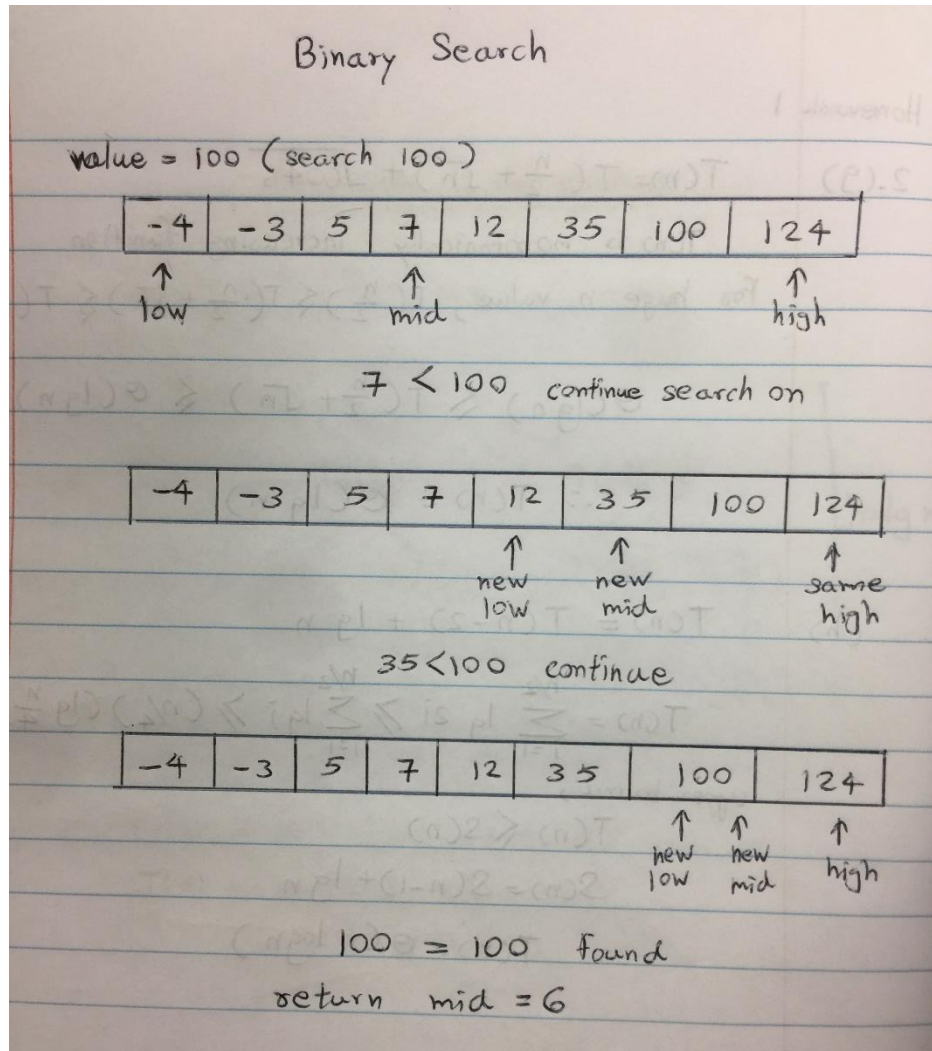 Binary Search
value = 100 (search 100)
-4 -3 5 7 12 35 100 124
↑ ↑ ↑
low mid high
7 < 100 continue search on
-4 -3 5 7 12 35 100 124
↑ ↑ ↑
new new same
low mid high
35<100 continue
-4 -3 5 7 12 35 100 124
↑ ↑ ↑
new new high
low mid
100 = 100 found
return mid = 6